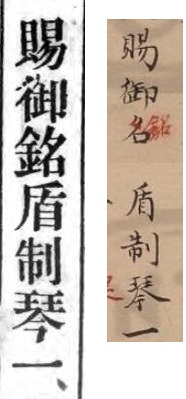 賜御名銘盾制琴一
賜御銘盾制琴一、